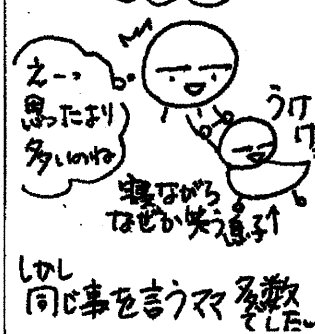 えーっ
思ったより
多いのね
うけ
け
寝ながら
なぜか笑う息子↑
しかし
同じ事を言うママ多数
でした